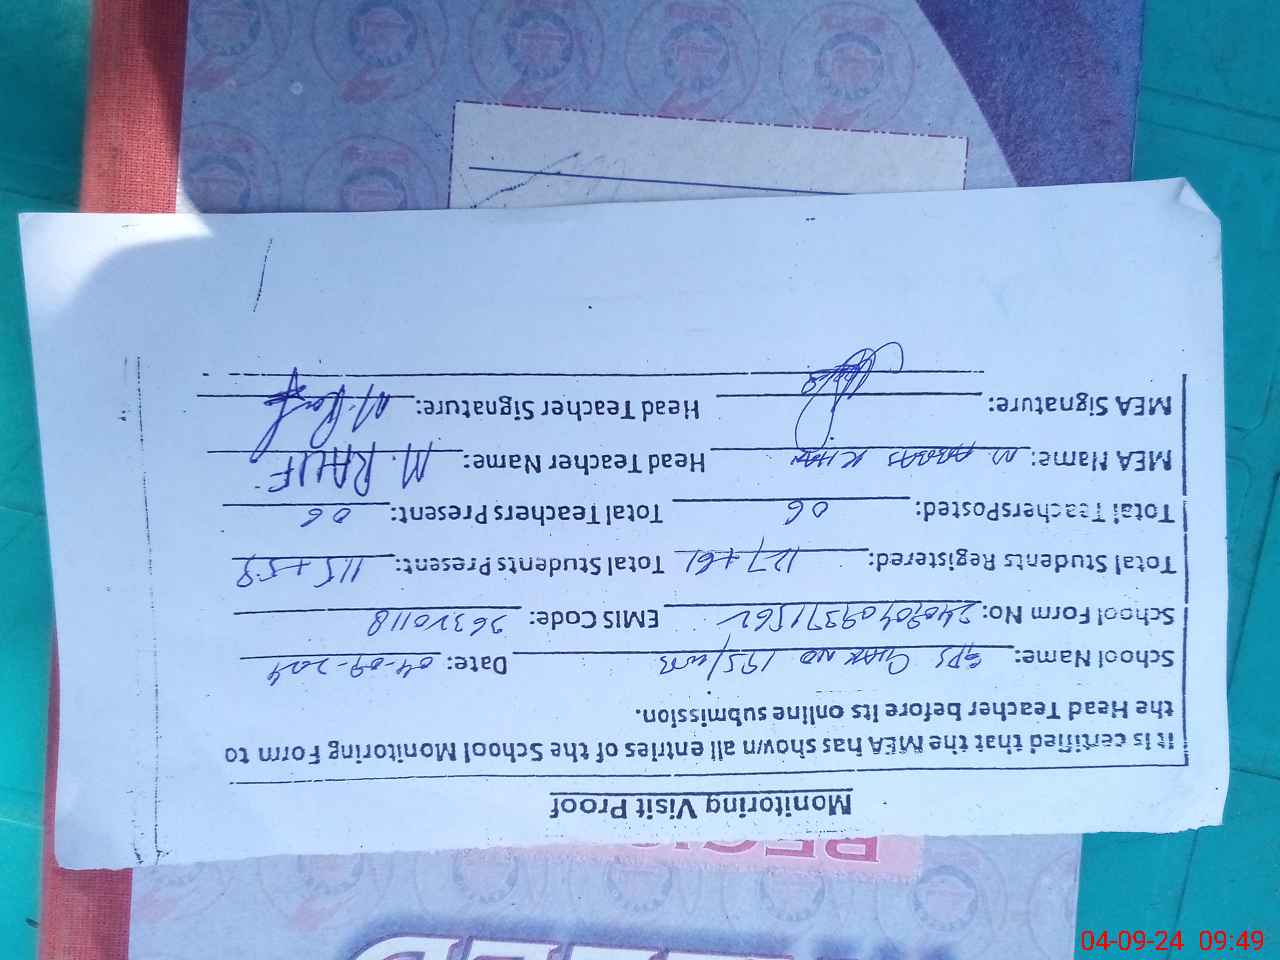 Monitoring Visit Proof
It is certified that the MEA has shown all entries of the School Monitoring Form to
the Head Teacher before its online submission.
School Name: GPS CHAK NO 195/WB Date: 04-09-2024
School Form No: EMIS Code: 36320118
Total Students Registered: 127+61 Total Students Present: 115+59
Total Teachers Posted: 06 Total Teachers Present: 06
MEA Name: M ABBAS KHAN Head Teacher Name: M. RAUF
MEA Signature: Head Teacher Signature: M. Rauf
04-09-24 09:49